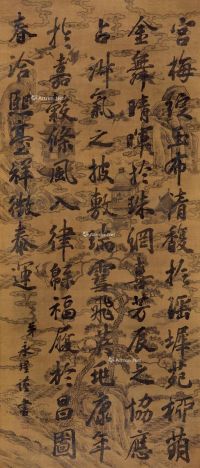 宮梅綻玉布清馥於瑤墀苑柳萌
金舞晴暉於珠網喜芳辰之協應
占淑氣之披敷瑞雪飛花兆康年
於嘉穀條風入律綿福履於昌圖
春洽熙臺祥徵泰運
永瑆敬書